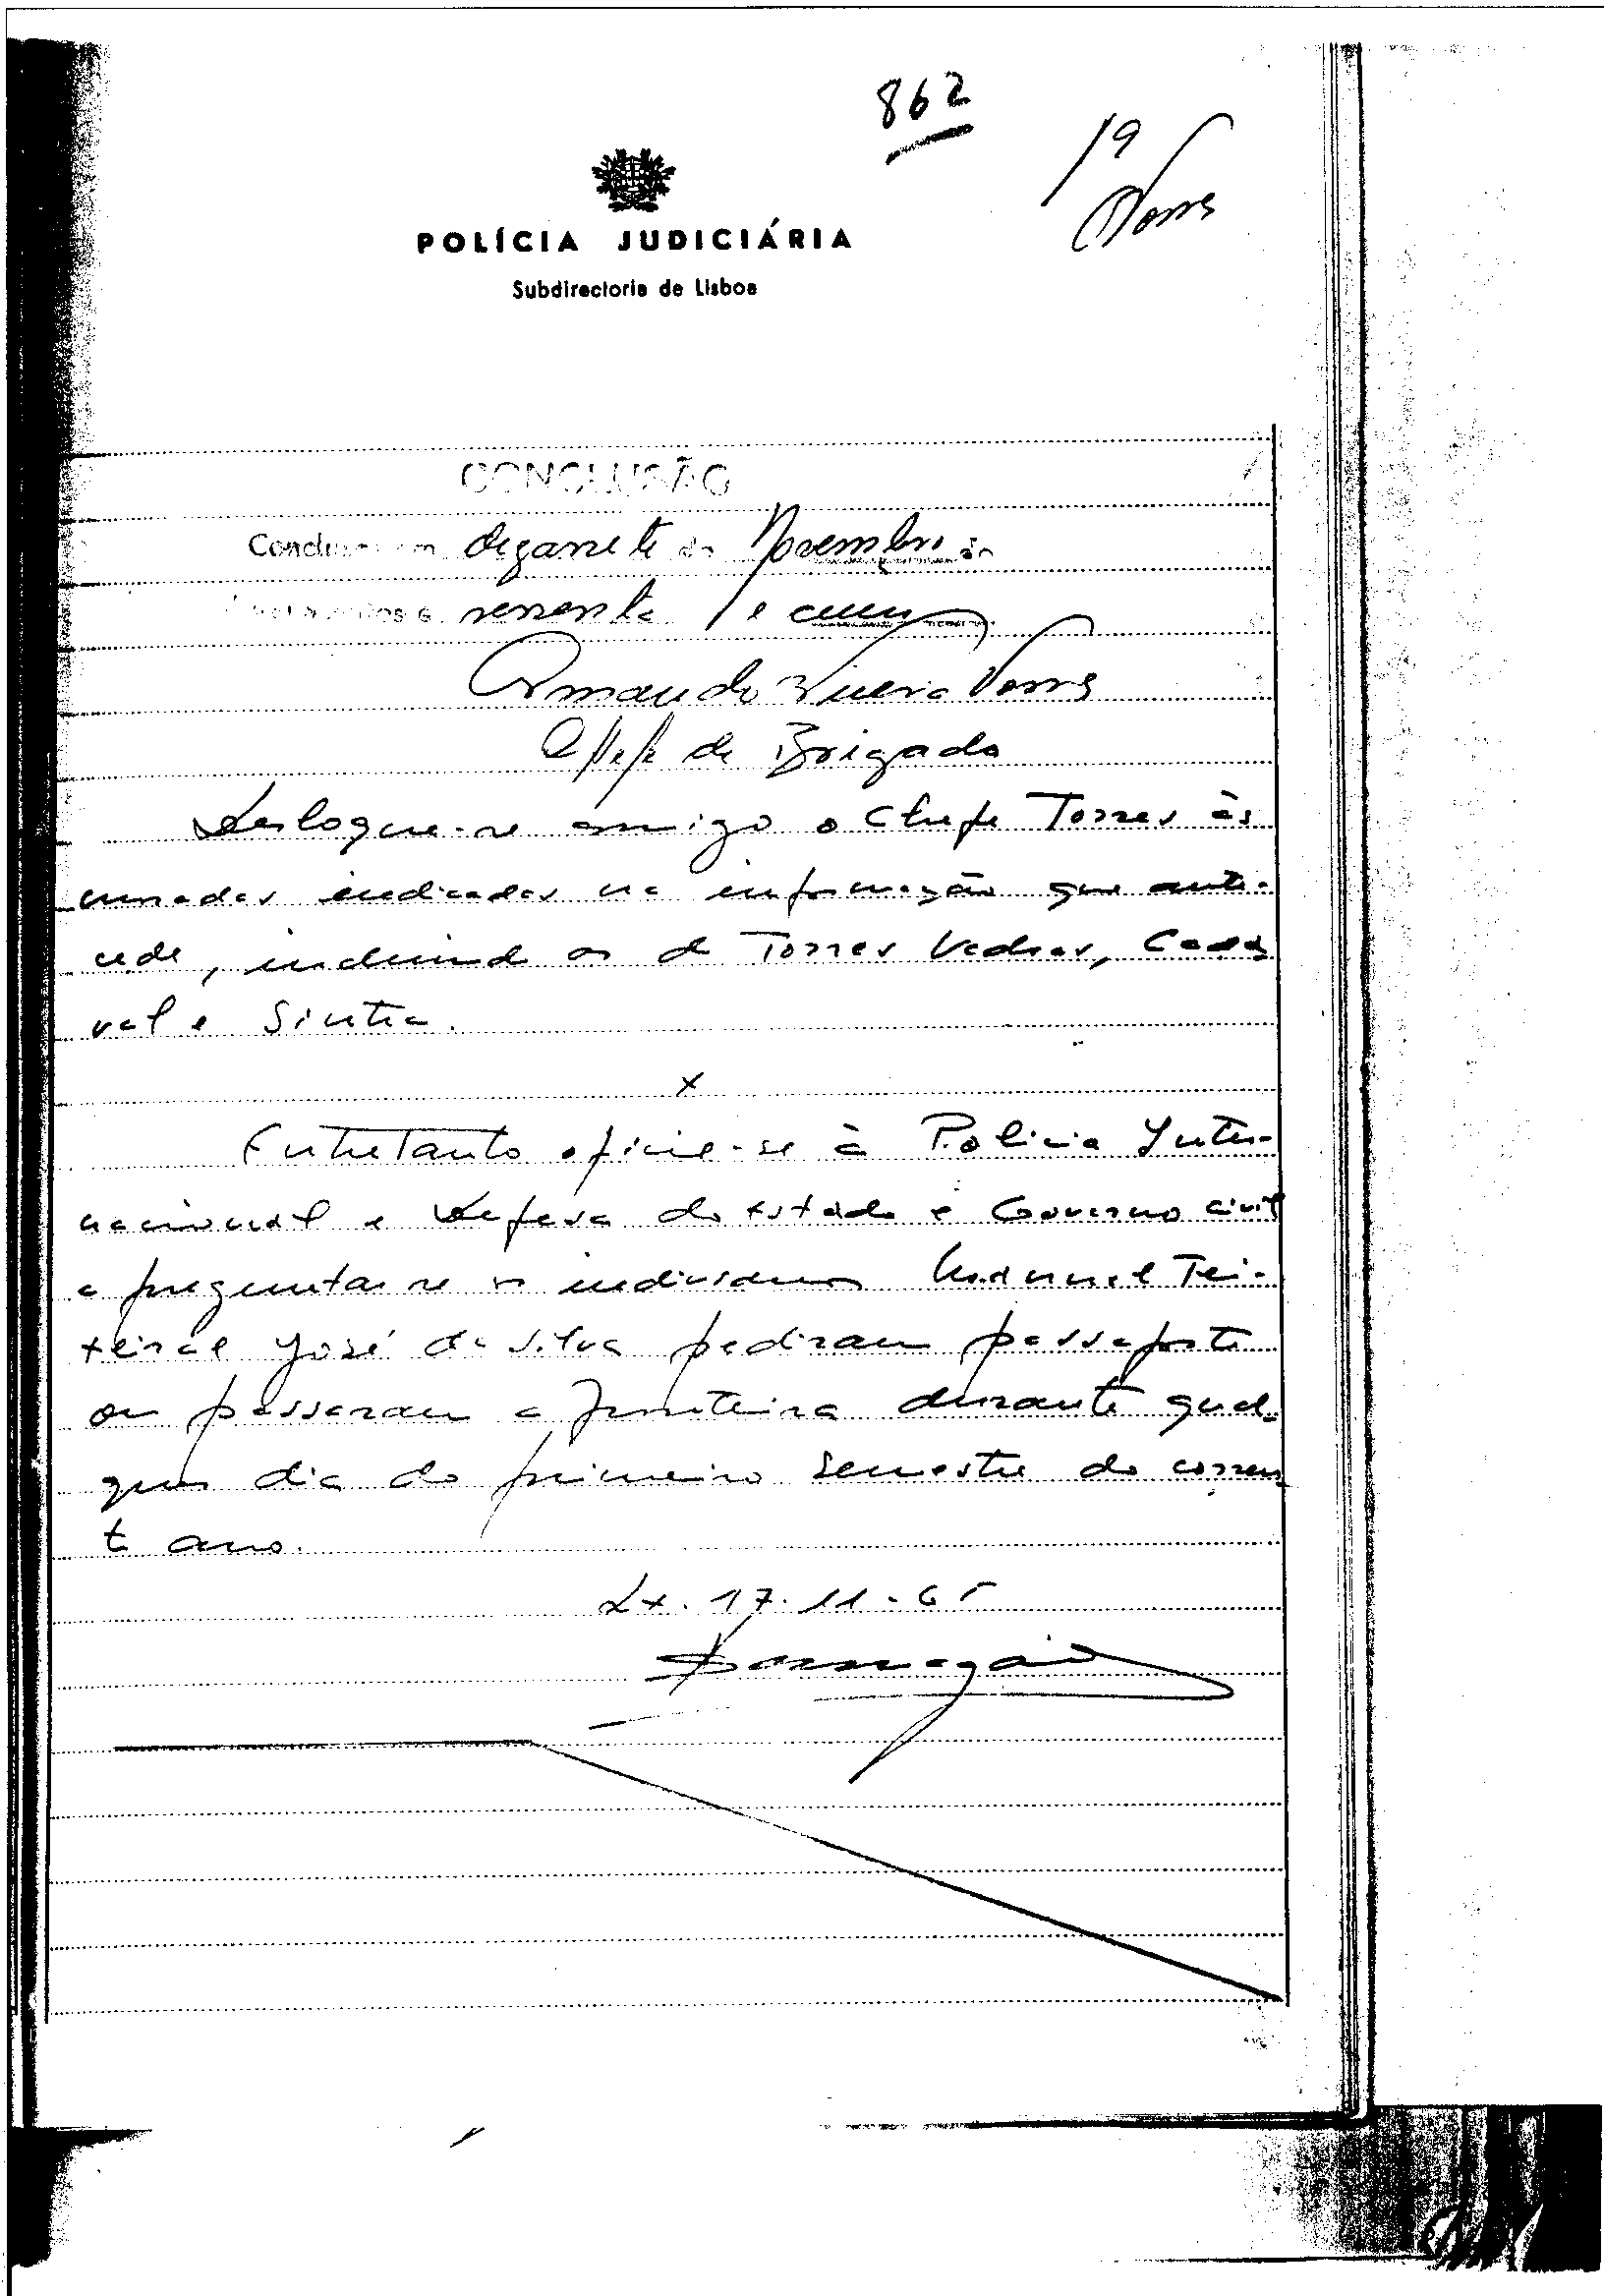 862
19
Torres
POLÍCIA JUDICIÁRIA
Subdirectoria de Lisboa
CONCLUSÃO
Conclusos em dezassete de Novembro de
sessenta e cinco
Armando Vieira Torres
Chefe de Brigada
Desloque-se comigo o Chefe Torres às
moradas indicadas na informação que ante-
cede, incluindo as de Torres Vedras, Cada
val e Sintra.
x
Entretanto oficie-se à Polícia Inter-
nacional e Defesa do Estado e Governo Civil
a preguntar se os individuos Manuel Tei-
xeira e José da Silva pediram passaporte
ou passaram a fronteira durante qual-
quer dia do primeiro semestre do corren
te ano.
Lx. 17.11.65